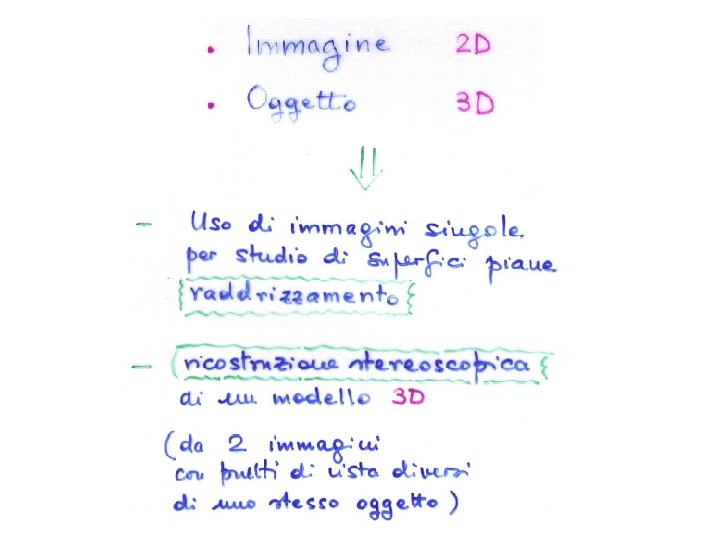 • Immagine 2D
• Oggetto 3D
⇓
- Uso di immagini singole
per studio di superfici piane
raddrizzamento
- ricostruzione stereoscopica
di un modello 3D
(da 2 immagini
con punti di vista diversi
di uno stesso oggetto)